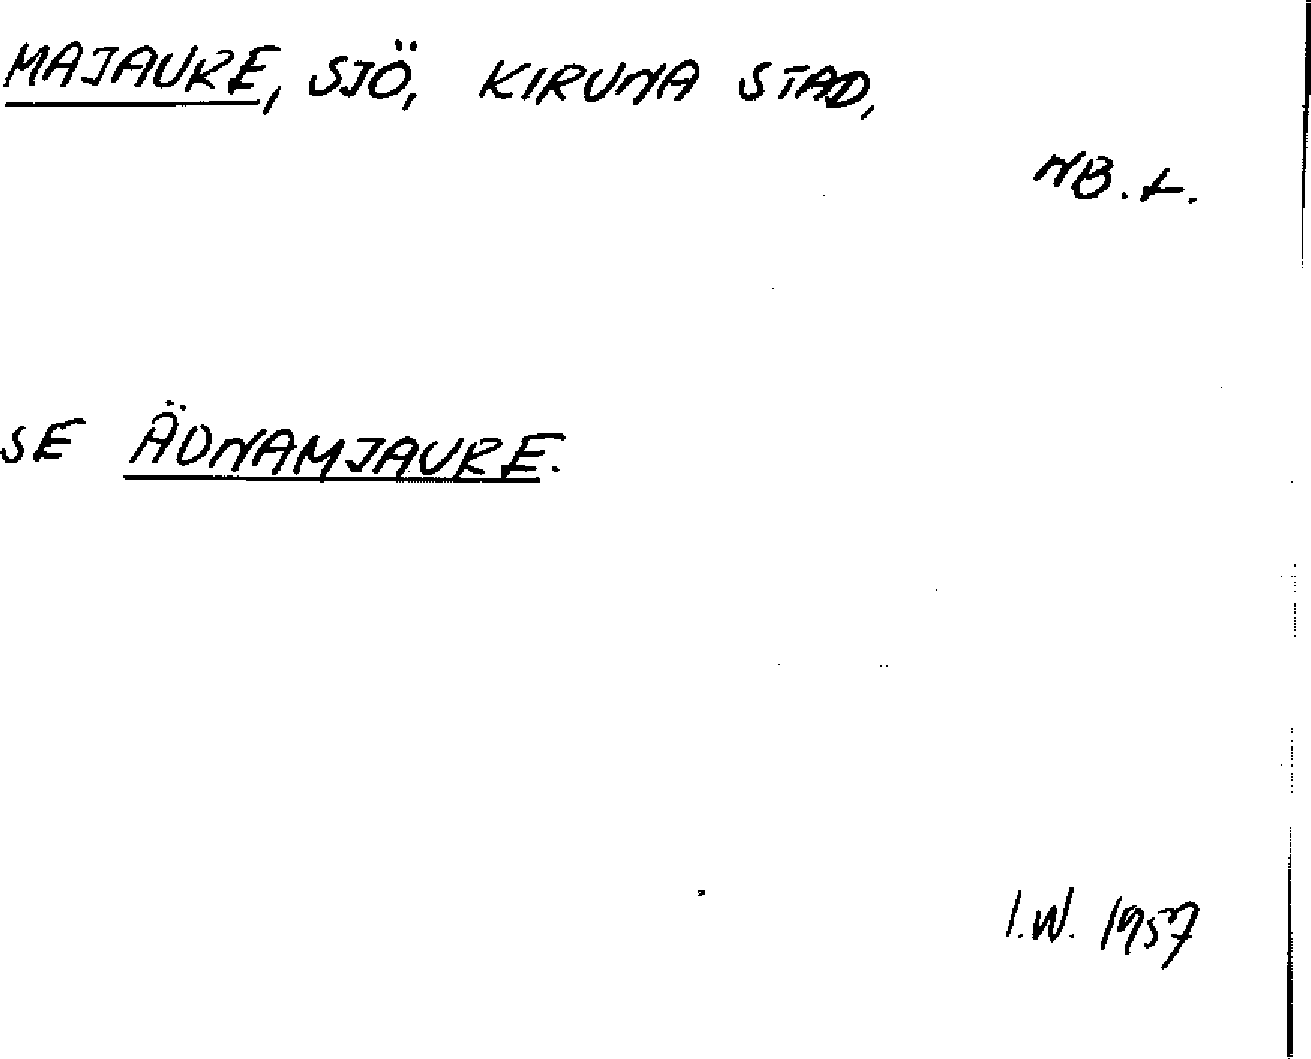 MAJAURE, SJÖ, KIRUNA STAD,
NB. L.
SE ÄDNAMJAURE.
I.W. 1957